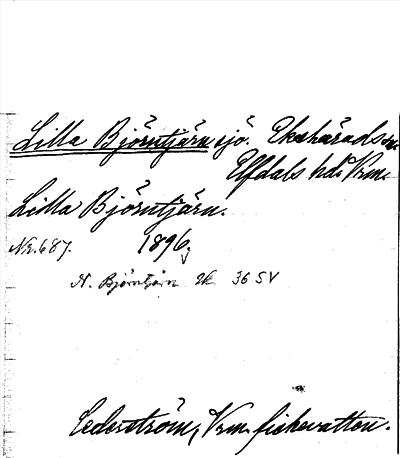 Lilla Björntjärn sjö. Ekshärads sn.
Elfdals hd. Vrm.
Lilla Björntjärn.
Nr. 687. 1896.
N. Björntjärn Ek 36 SV
Cederström, Vrm. fiskevatten.